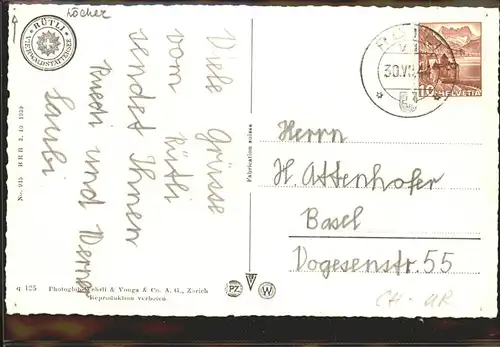 Löcher
RÜTLI
VIERWALDSTÄTTERSEE
Viele Grüsse
vom Rütli
sendet Ihnen
Ruedi und Werner
Saubi
No. 915 BRB 3. 10. 1939
Fabrication suisse
30.VII.44
10 HELVETIA
Herrn
H Attenhofer
Basel
Vogesenstr. 55
CH - UR
q 125 Photoglob-Wehrli & Vouga & Co. A. G., Zürich
Reproduktion verboten
PZ
W